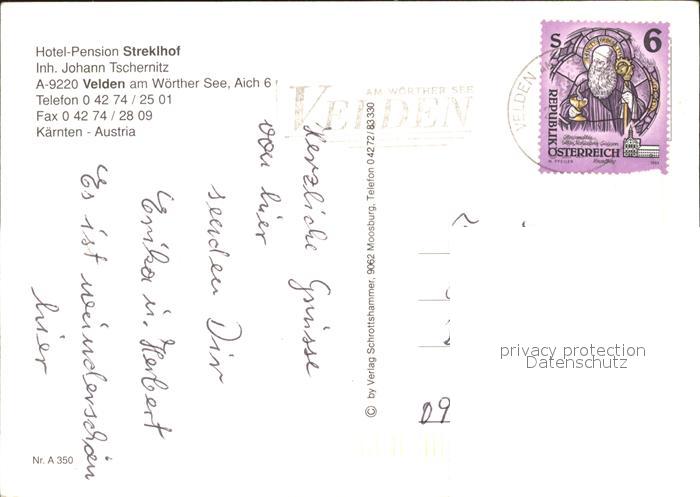 Hotel-Pension Streklhof
Inh. Johann Tschernitz
A-9220 Velden am Wörther See, Aich 6
Telefon 0 42 74 / 25 01
Fax 0 42 74 / 28 09
Kärnten - Austria
AM WÖRTHER SEE
VELDEN
VELDEN
S 6
REPUBLIK
ÖSTERREICH
Herzliche Grüsse
von hier
senden Dir
Erika u. Herbert
Es ist wunderschön
hier
© by Verlag Schrottshammer, 9062 Moosburg, Telefon 04272/83330
09
privacy protection
Datenschutz
Nr. A 350